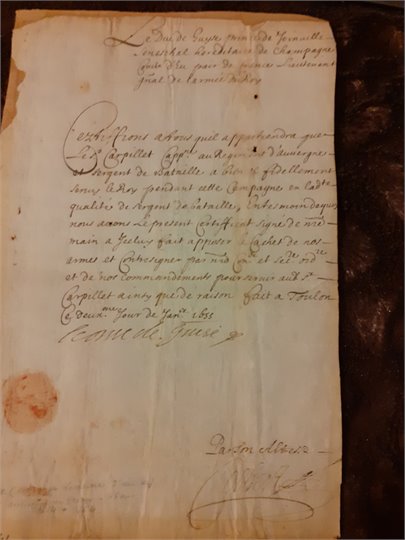 Le Duc de Guyse prince de Joinville
Seneschal hereditaire de Champagne
Conte d'Eu pair de france Lieutenant
gnal de l'armée du Roy
Certiffions a tous quil appartiendra que
Le Sr. Carpillet Cappne au Regiment d'auvergne
et sergent de Bataille a bien & fidellement
servy le Roy pendant cette Campagne en ladte
qualité de sergent de bataille, En tesmoin de quoy
nous avons Le present Certifficat signé de nre
main a Icelluy fait apposer le cachet de nos
armes et Contresigner par nre Coner et Secre ordre
et de nos commandements pour servir aud Sr.
Carpillet ainsy que de raison fait a Toulon
Ce deuxme Jour de Janer 1655
Le duc de Guise
Par son Altesse